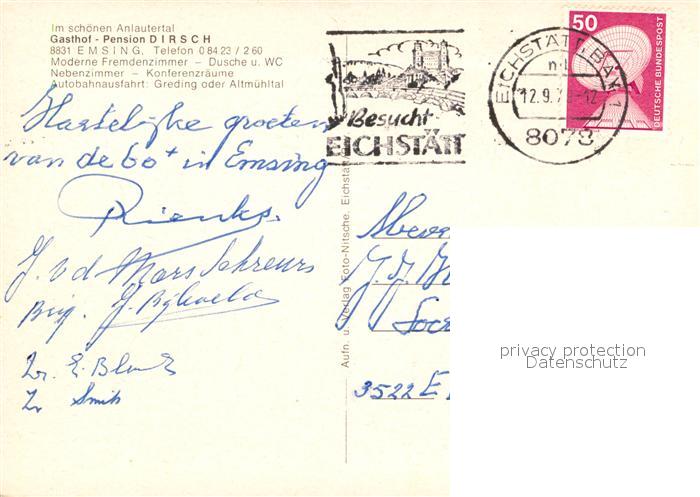 Im schönen Anlautertal
Gasthof - Pension DIRSCH
8831 EMSING, Telefon 0 84 23 / 2 60
Moderne Fremdenzimmer – Dusche u. WC
Nebenzimmer – Konferenzräume
Autobahnausfahrt: Greding oder Altmühltal
Besucht
EICHSTÄTT
EICHSTÄTT, BAY 1
12.9.7 -12
8078
50
DEUTSCHE BUNDESPOST
Hartelijke groeten
van de 60+ in Emsing
Rienks.
J. v d
Brig. J.
Zr. E. Blenk
Zr Smits
Aufn. u. Verlag Foto-Nitsche, Eichstä
3522 E
privacy protection
Datenschutz